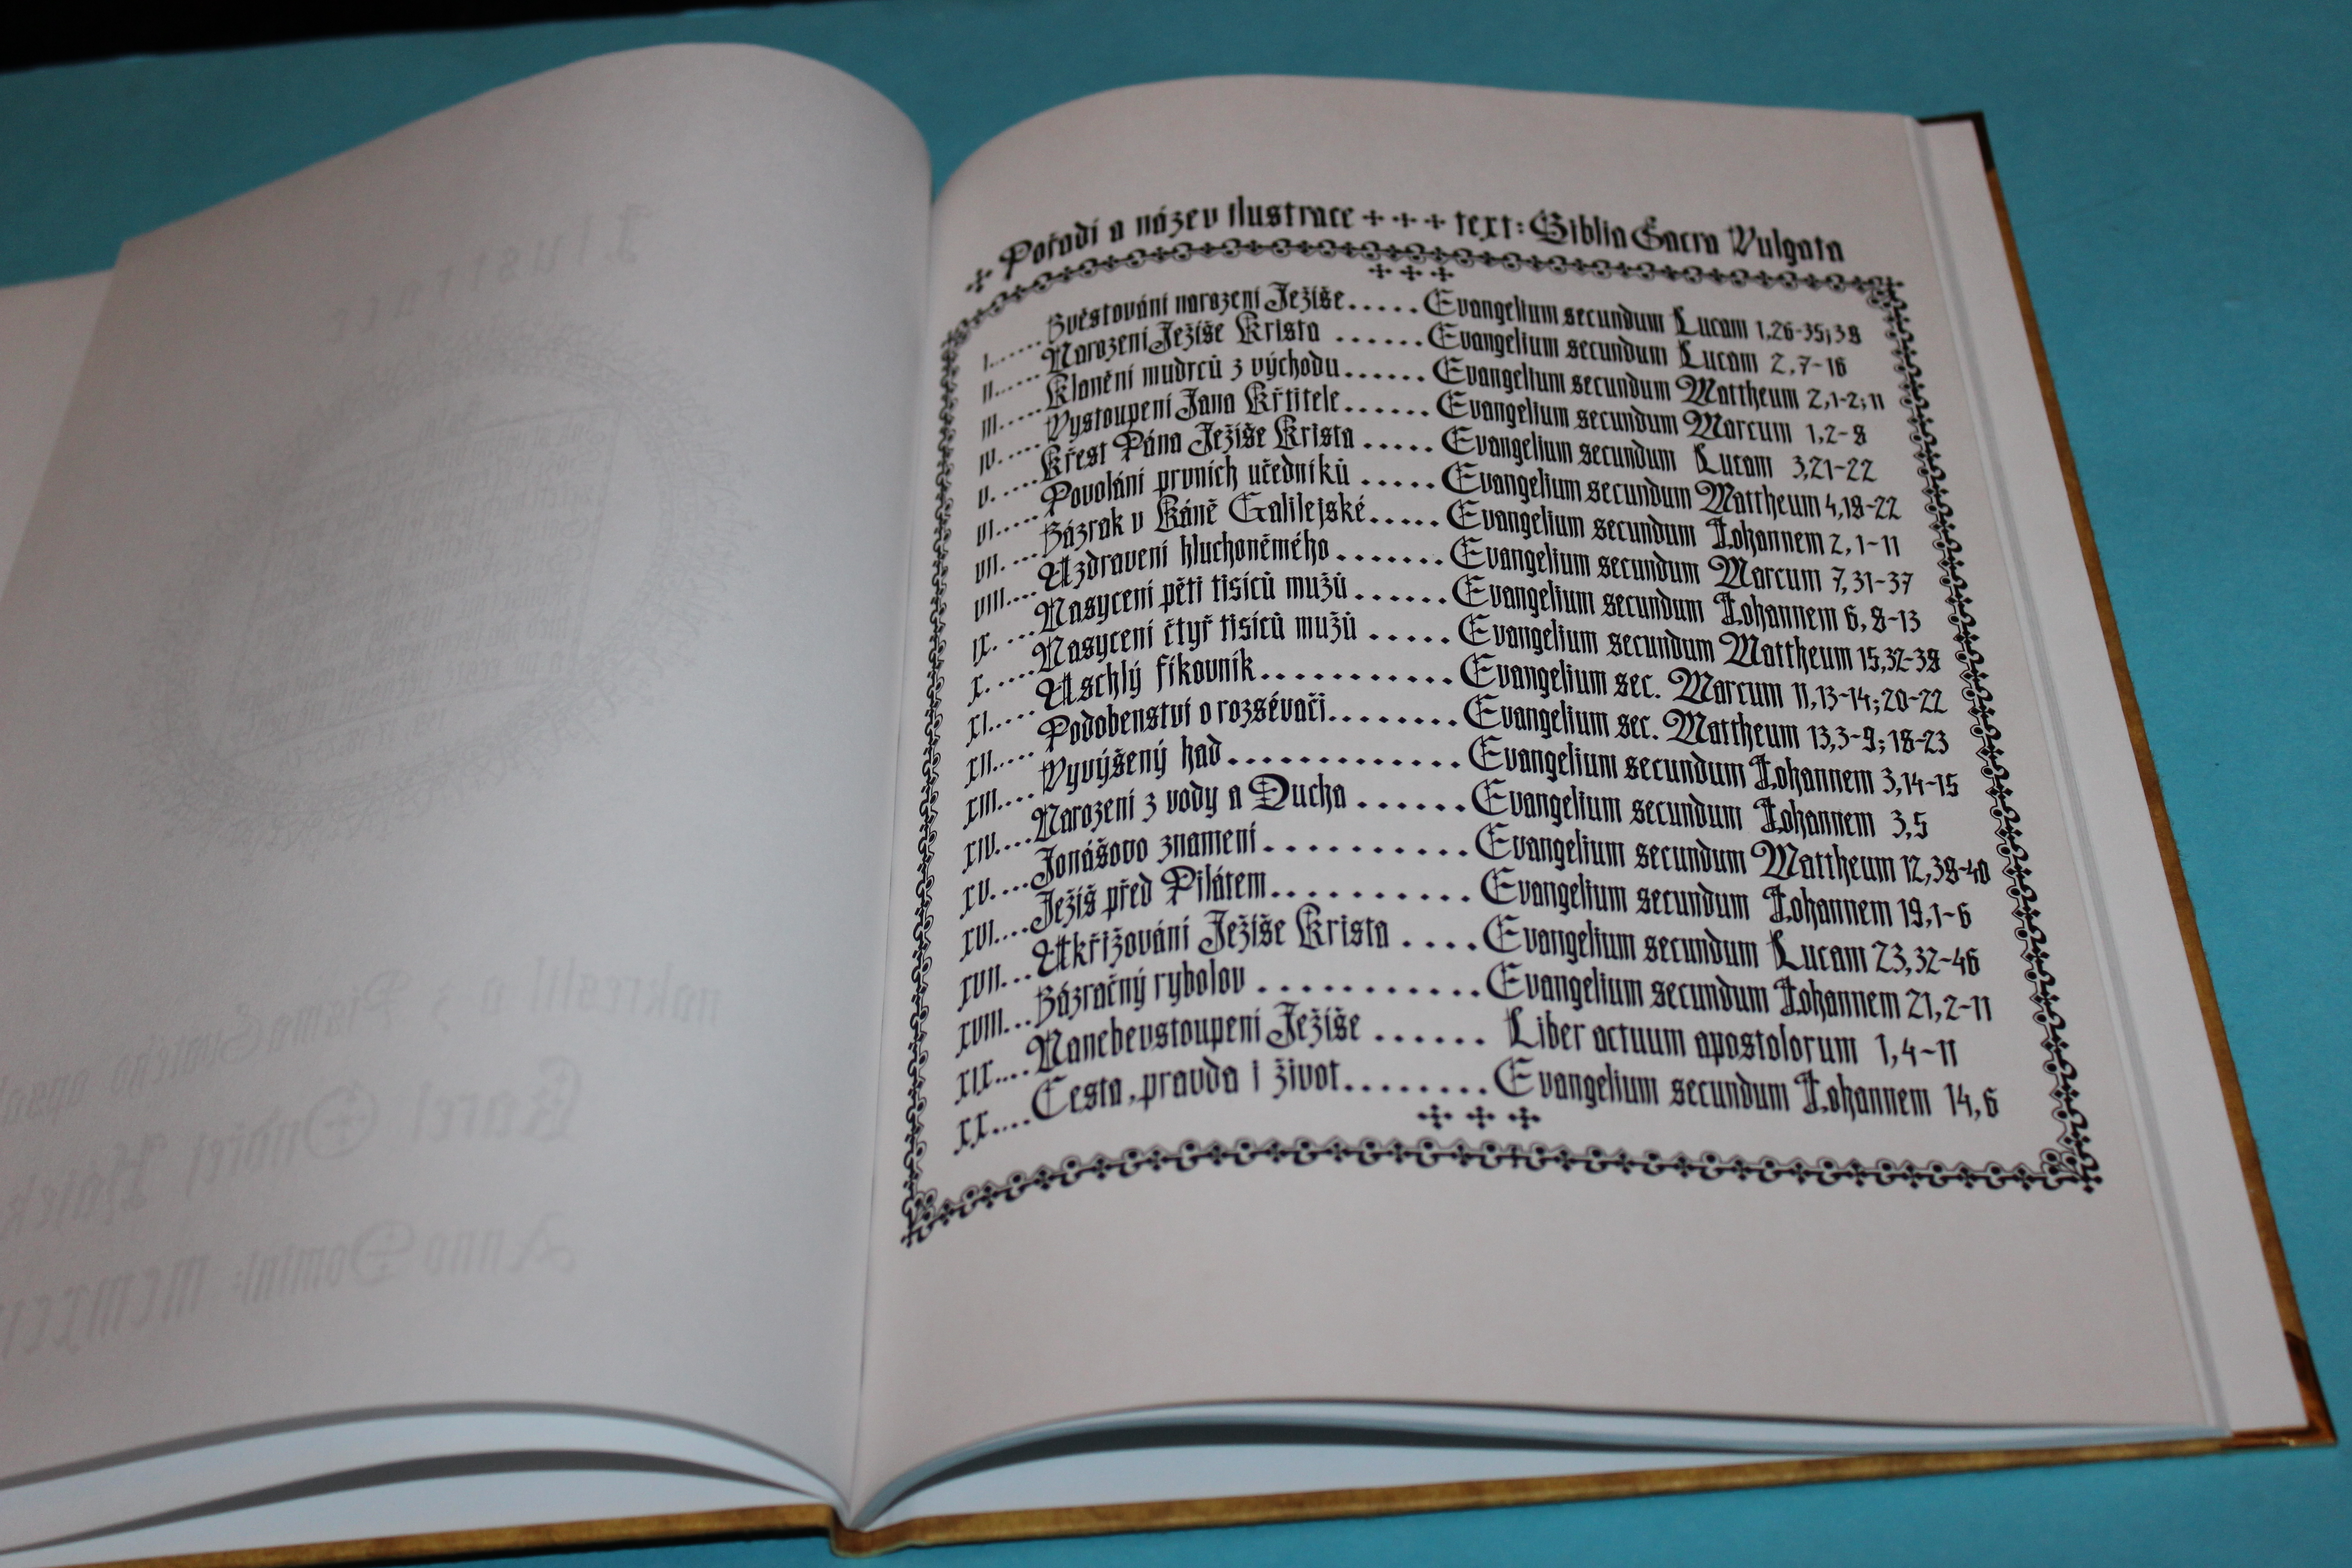 Ilustrace
nakreslil a z Písma Svatého
Karel Ondřej Hájek
Anno Domini: MCMXCI
Pořadí a název ilustrace + + + text: Biblia Sacra Vulgata
I...... Zvěstování narození Ježíše..... Evangelium secundum Lucam 1,26-35;38
II...... Narození Ježíše Krista ...... Evangelium secundum Lucam 2,7-16
III..... Klanění mudrců z východu...... Evangelium secundum Mattheum 2,1-2;11
IV..... Vystoupení Jana Křtitele...... Evangelium secundum Marcum 1,2-8
V..... Křest Pána Ježíše Krista ..... Evangelium secundum Lucam 3,21-22
VI..... Povolání prvních učedníků ..... Evangelium secundum Mattheum 4,18-22
VII.... Zázrak v Káně Galilejské..... Evangelium secundum Iohannem 2,1-11
VIII.... Uzdravení hluchoněmého ....... Evangelium secundum Marcum 7,31-37
IX. ... Nasycení pěti tisíců mužů ...... Evangelium secundum Iohannem 6,8-13
X..... Nasycení čtyř tisíců mužů ..... Evangelium secundum Mattheum 15,32-38
XI..... Uschlý fíkovník........... Evangelium sec. Marcum 11,13-14;20-22
XII.... Podobenství o rozsévači........ Evangelium sec. Mattheum 13,3-9;18-23
XIII.... Vyvýšený had ............. Evangelium secundum Iohannem 3,14-15
XIV.... Narození z vody a Ducha ...... Evangelium secundum Iohannem 3,5
XV. ... Jonášovo znamení .......... Evangelium secundum Mattheum 12,38-40
XVI.... Ježíš před Pilátem.......... Evangelium secundum Iohannem 19,1-6
XVII... Ukřižování Ježíše Krista .... Evangelium secundum Lucam 23,32-46
XVIII... Zázračný rybolov ........... Evangelium secundum Iohannem 21,2-11
XIX.... Nanebevstoupení Ježíše ...... Liber actuum apostolorum 1,4-11
XX.... Cesta, pravda i život........ Evangelium secundum Iohannem 14,6